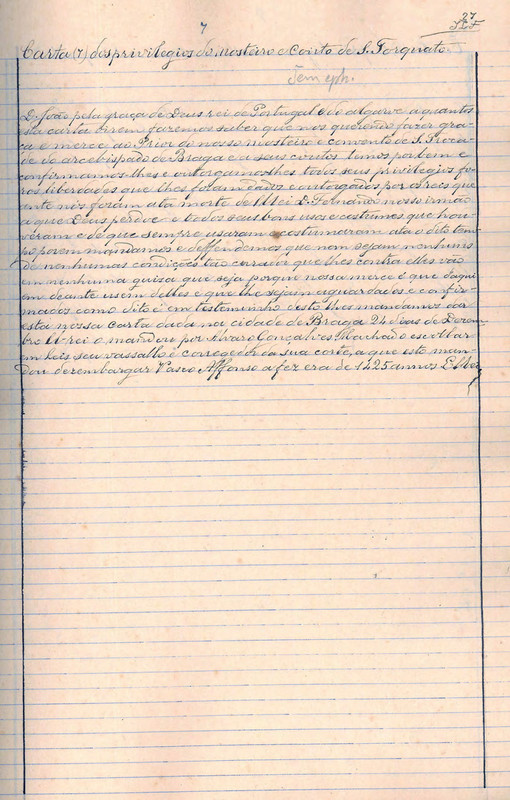 27
7
Carta (7) dos privilegios do mosteiro e Couto de S. Torquato
Tem eph.
D. João pela graça de Deus rei de Portugal e do algarve a quantos
esta carta virem fazemos saber que nos querendo fazer gra-
ça e mercê ao Prior do nosso mosteiro e convento de S. Troca-
de do arcebispado de Braga e a seus coutos temos por bem e
confirmamos-lhes e outorgamos-lhes todos seus privilegios fo-
ros liberdades que lhes foram dados e outorgados por os reis que
ente nós foram atá morte de El-rei D. Fernando nosso irmão
a que Deus perdoe e todos seus bons usos e costumes que hou-
veram e de que sempre usaram e costumaram ata o dito tem-
po porem mandamos e deffendemos que nom sejam nenhuns
de nenhumas condições tão ousados que lhes contra elles vão
em nenhuma guisa que seja porque nossa mercê é que daqui
em deante usem delles e que lhe sejam aguardados e confir-
mados como dito é em testemunho desto lhes mandamos dar
esta nossa carta dada na cidade de Braga 24 dias de Dezem-
bro El-rei o mandou por Alvaro Gonçalves Machado escolhar
em leis seu vassallo e corregedor da sua corte, a que esto man-
dou desembargar Vasco Affonso a fez era de 1425 annos